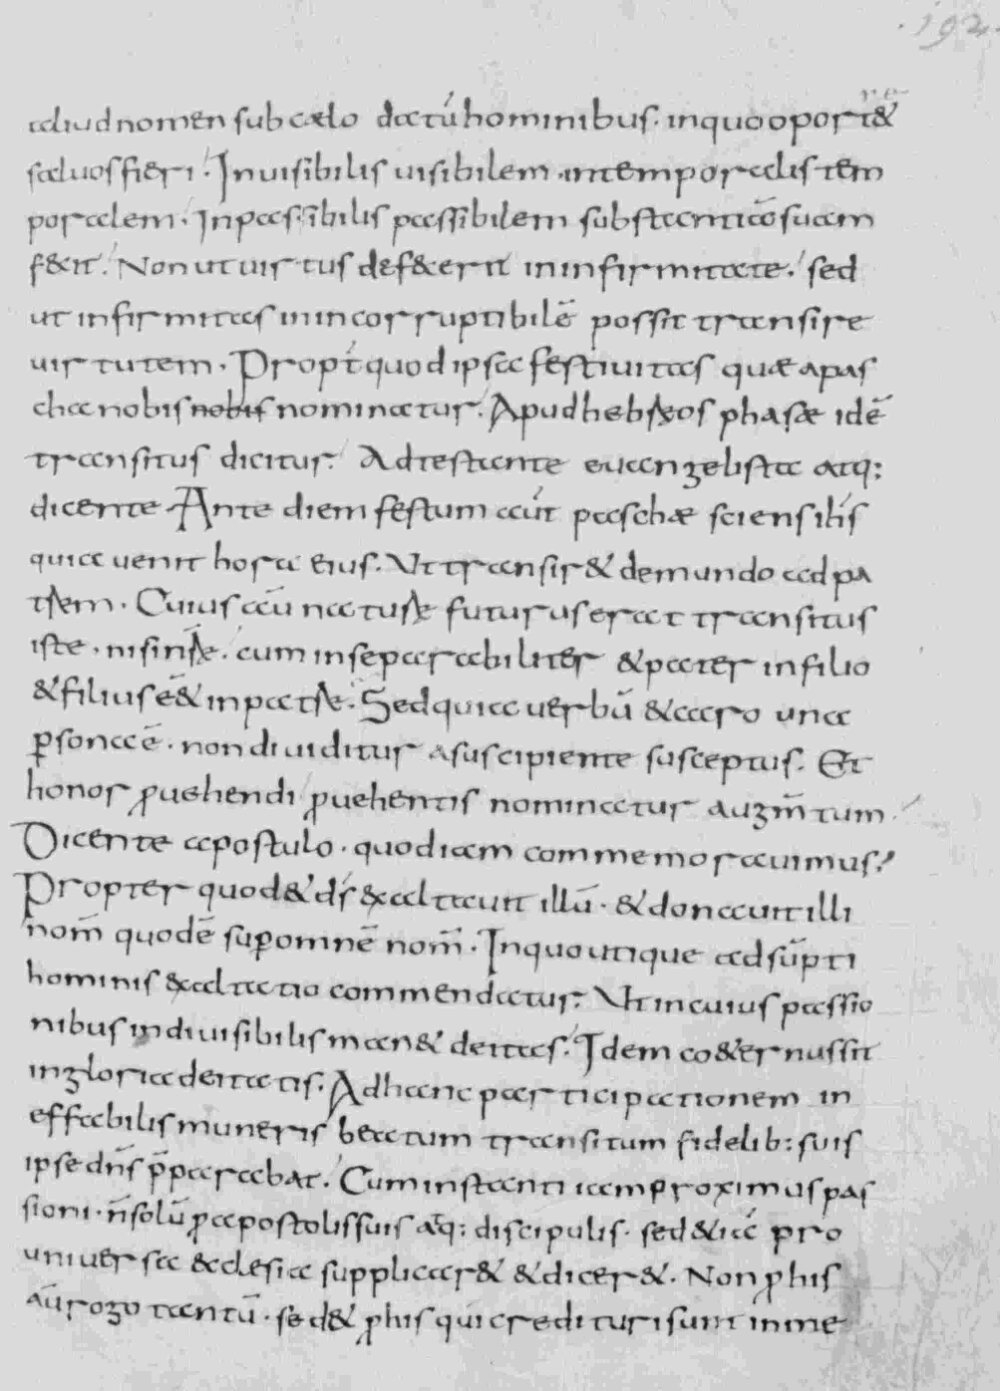 .192.
aliud nomen sub cælo datū hominibus. in quo oport&
saluos fieri. Inuisibilis uisibilem. intemporalis tem
poralem. Inpassibilis passibilem substantiā suam
fecit. Non ut uirtus defecerit in infirmitate. sed
ut infirmitas in incorruptibilē possit transire
uirtutem. Propt quod ipsa festiuitas quæ apas
cha nobis nobis nominatur. Apud hebreos phasæ idē
transitus dicitur. Adtestante euangelista atq:
dicente. Ante diem festum aūt paschæ sciens ihs
quia uenit hora eius. Ut transir& de mundo ad pa
trem. Cuius aū naturæ futurus erat transitus
iste. nisi nræ. cum inseparabiliter & pater in filio
& filius ē & in patre. Sed quia uerbū & caro una
psona ē. non diuiditur a suscipiente susceptus. Et
honor puehendi puehentis nominatur augm̄tum
Dicente apostulo. quod iam commemorauimus.
Propter quod & ds exaltauit illū. & donauit illi
nom̄ quod ē sup omnē nom̄. In quo utique adsūpti
hominis exaltatio commendatur. Ut in cuius passio
nibus indiuisibilis man& deitas. Idem coeternus sit
in gloria deitatis. Ad hanc participationem in
effabilis muneris beatum transitum fidelib: suis
ipse dn̄s p̄parabat. Cum instanti iam proximus pas
sioni. n̄ solū p apostolis suis atq: discipulis. sed & iā pro
uniuersa ecclesia supplicar& & dicer&. Non p his
aū rogo tantū. sed & p his qui credituri sunt in me